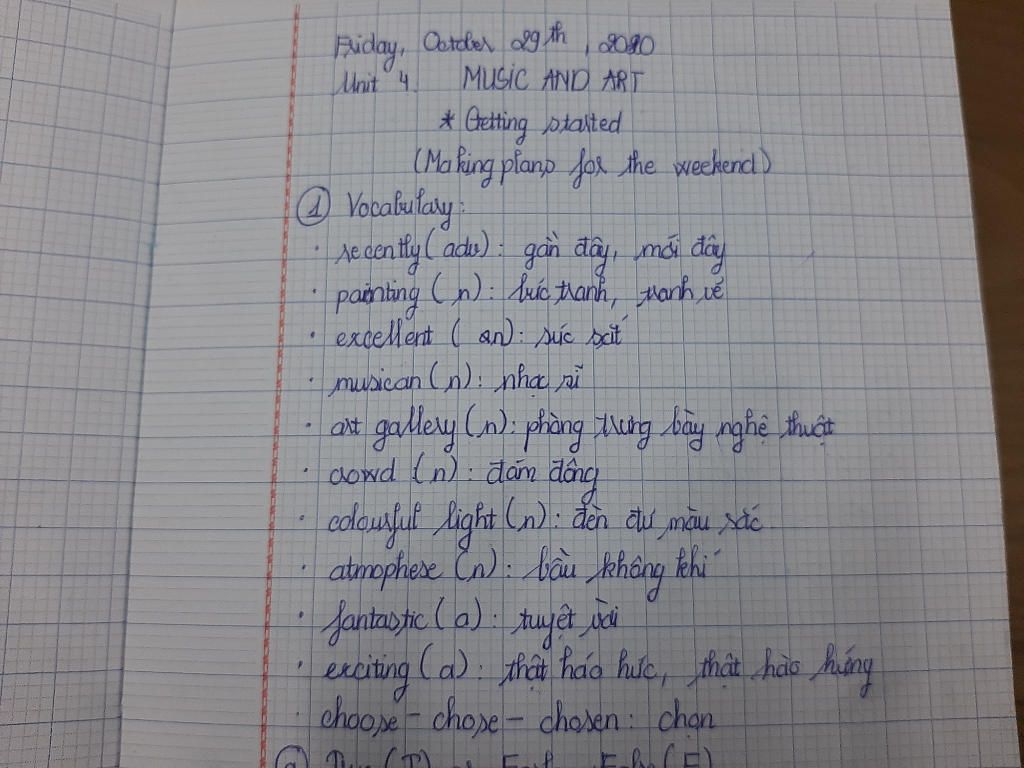 Friday, October 29th, 2020
Unit 4 MUSIC AND ART
* Getting started
(Making plans for the weekend)
① Vocabulary:
· recently (adv): gần đây, mới đây
· painting (n): bức tranh, tranh vẽ
· excellent ( an): xúc sắt
· musican (n): nhạc sĩ
· art gallery (n): phòng trưng bày nghệ thuật
· crowd (n): đám đông
· colourful light (n): đèn đủ màu sắc
· atmophere (n): bầu không khí
· fantastic (a): tuyệt vời
· exciting (a): thật háo hức, thật hào hứng
choose - chose - chosen: chọn